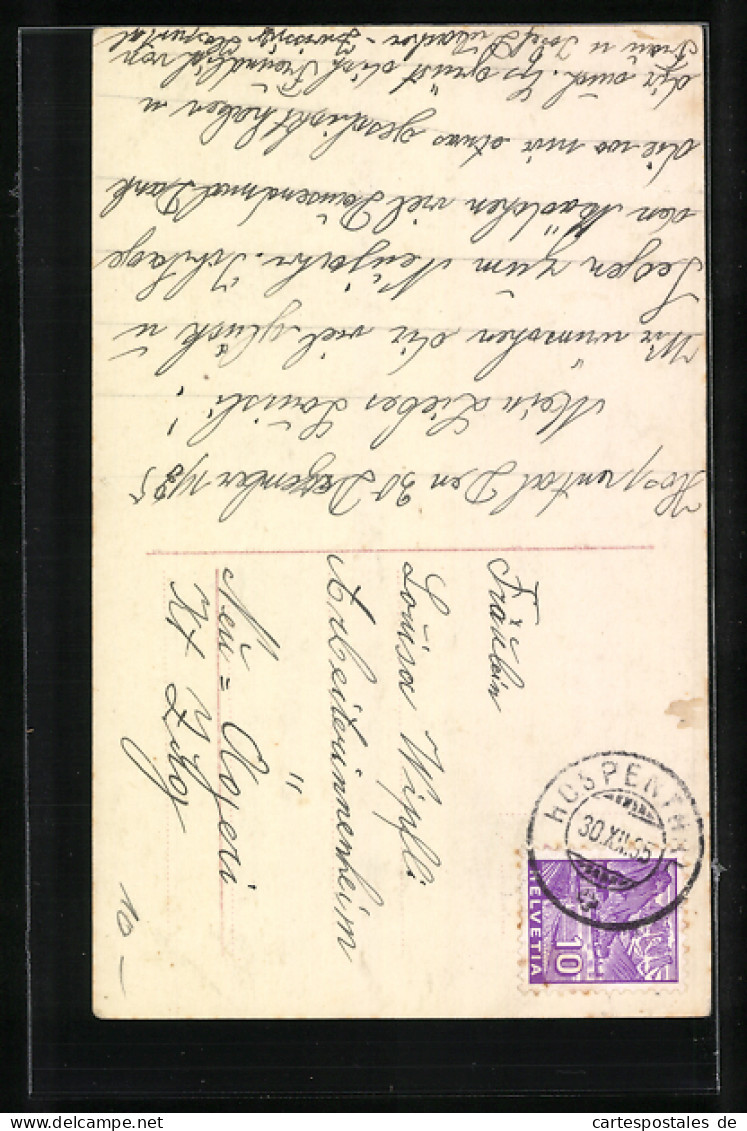 Hospental Den 30 Dezember 1935
Mein Liebes Louisli!
Wir wünschen dir viel glück u
Segen zum Neujahr. Ich sage
den Mädchen viel Tausendmal Dank
die wo mir etwas geschickt haben u
dir auch. Es grüst dich Freundlich von
Frau u Josef Hospental
Fräulein
Louisa Wipfli
Arbeiterinnenheim
"
Neu=Aegeri
Kt Zug
HOSPENTHAL
30.XII.35
10
HELVETIA
10 –
cartespostales de